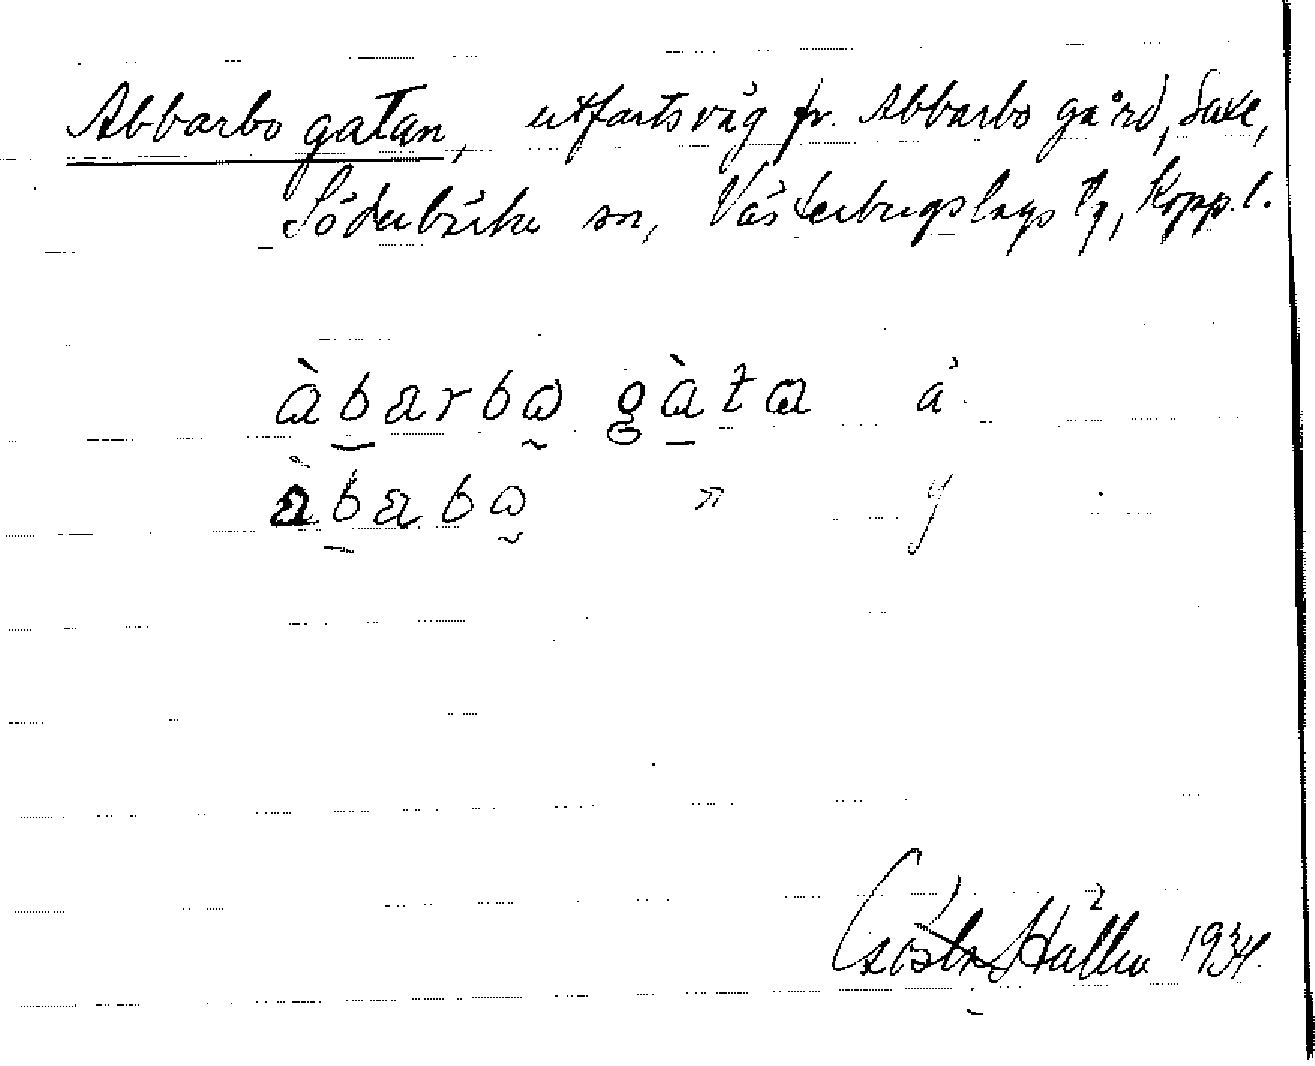 Abbarbo gatan, utfartsväg fr. Abbarbo gård, Saxe,
Söderbärke sn, Västerbergslags tg, Kopp.l.
àbarbω gàta ä.
àbabω » y
Gösta Hallén 1934.